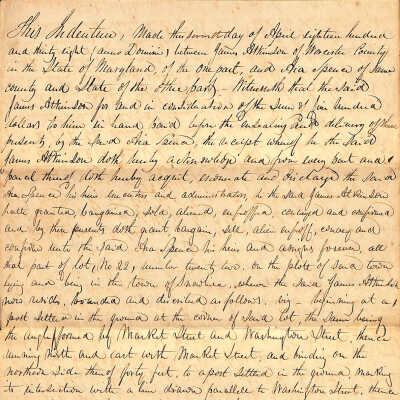 This Indenture, Made this seventh day of April eighteen hundred
and thirty eight (anno Domini) between James Atkinson of Worcester County
in the State of Maryland, of the one part, and Asa Spence of same
county and State of the other part. Witnesseth that the said
James Atkinson for and in consideration of the sum of five hundred
dollars to him in hand paid before the ensealing and delivery of these
presents, by the said Asa Spence, the receipt whereof he the said
James Atkinson doth hereby acknowledge and from every part and
parcel thereof doth hereby acquit, exonerate and discharge the said
Asa Spence his heirs executors and administrators, he the said James Atkinson
hath granted, bargained, sold, aliened, enfeoffed, conveyed and confirmed
and by these presents doth grant, bargain, sell, alien enfeoff, convey and
confirm unto the said Asa Spence his heirs and assigns forever, all
that part of lot, No 22, number twenty two, on the plott of said town
lying and being in the town of Snowhill, where the said James Atkinson
now resides, bounded and described as follows. viz - beginning at a
post settled in the ground at the corner of said lot, the same being
the angle formed by Market Street and Washington Street, thence
running North and east with Market Street, and binding on the
northern side thereof forty feet, to a post settled in the ground marking
to intersection with a line drawn parallel to Washington Street, thence